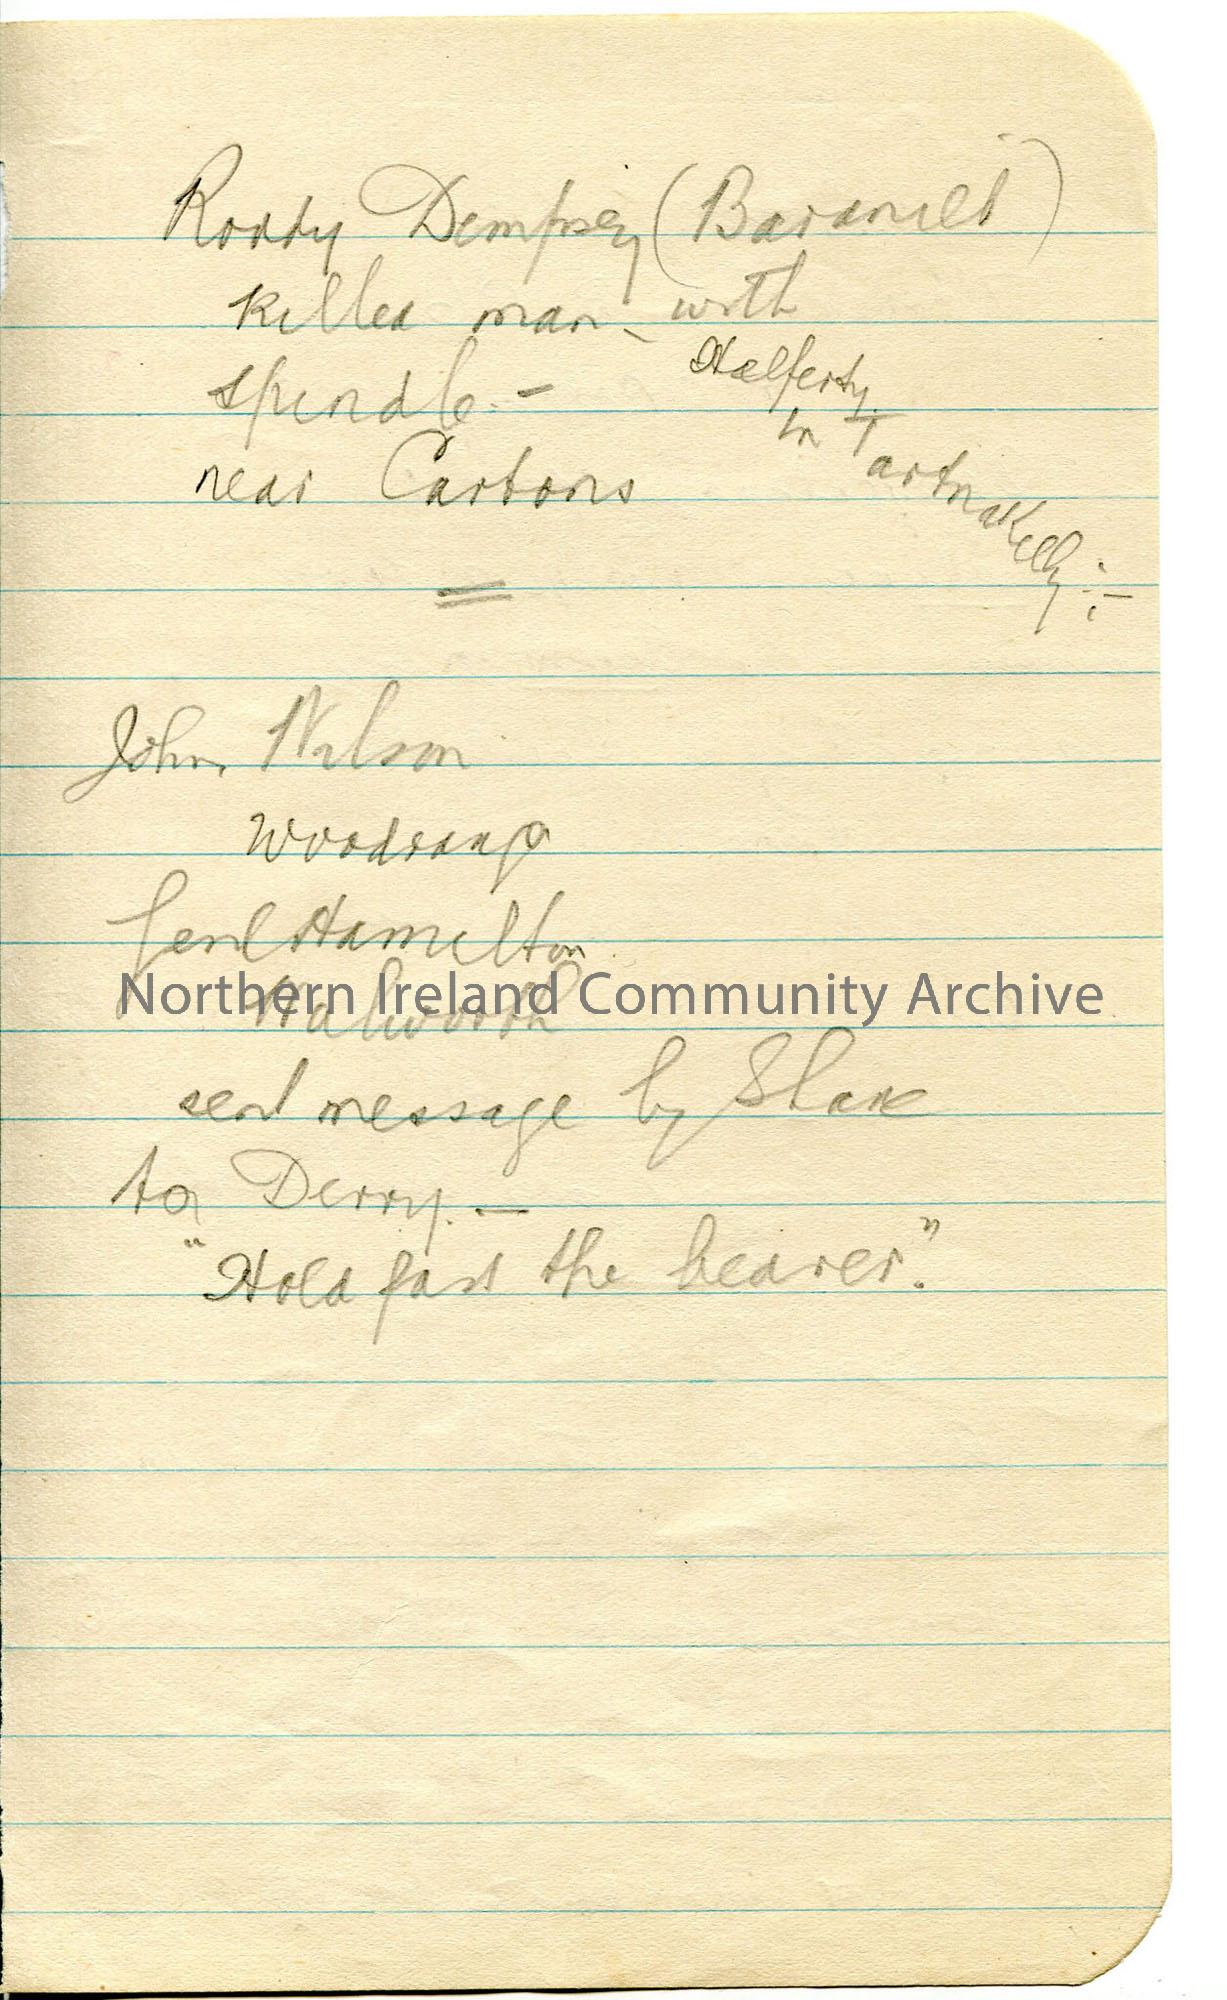 Roddy Dempsey (Baranailt)
killed man - with
spindle. -
near Carbons
Halferty
in Tartnakelly :-
John Nelson
Woodrange
Genl Hamilton
Northern Ireland Community Archive
Walworth
sent message by Slane
to Derry. -
"Hold fast the bearer."